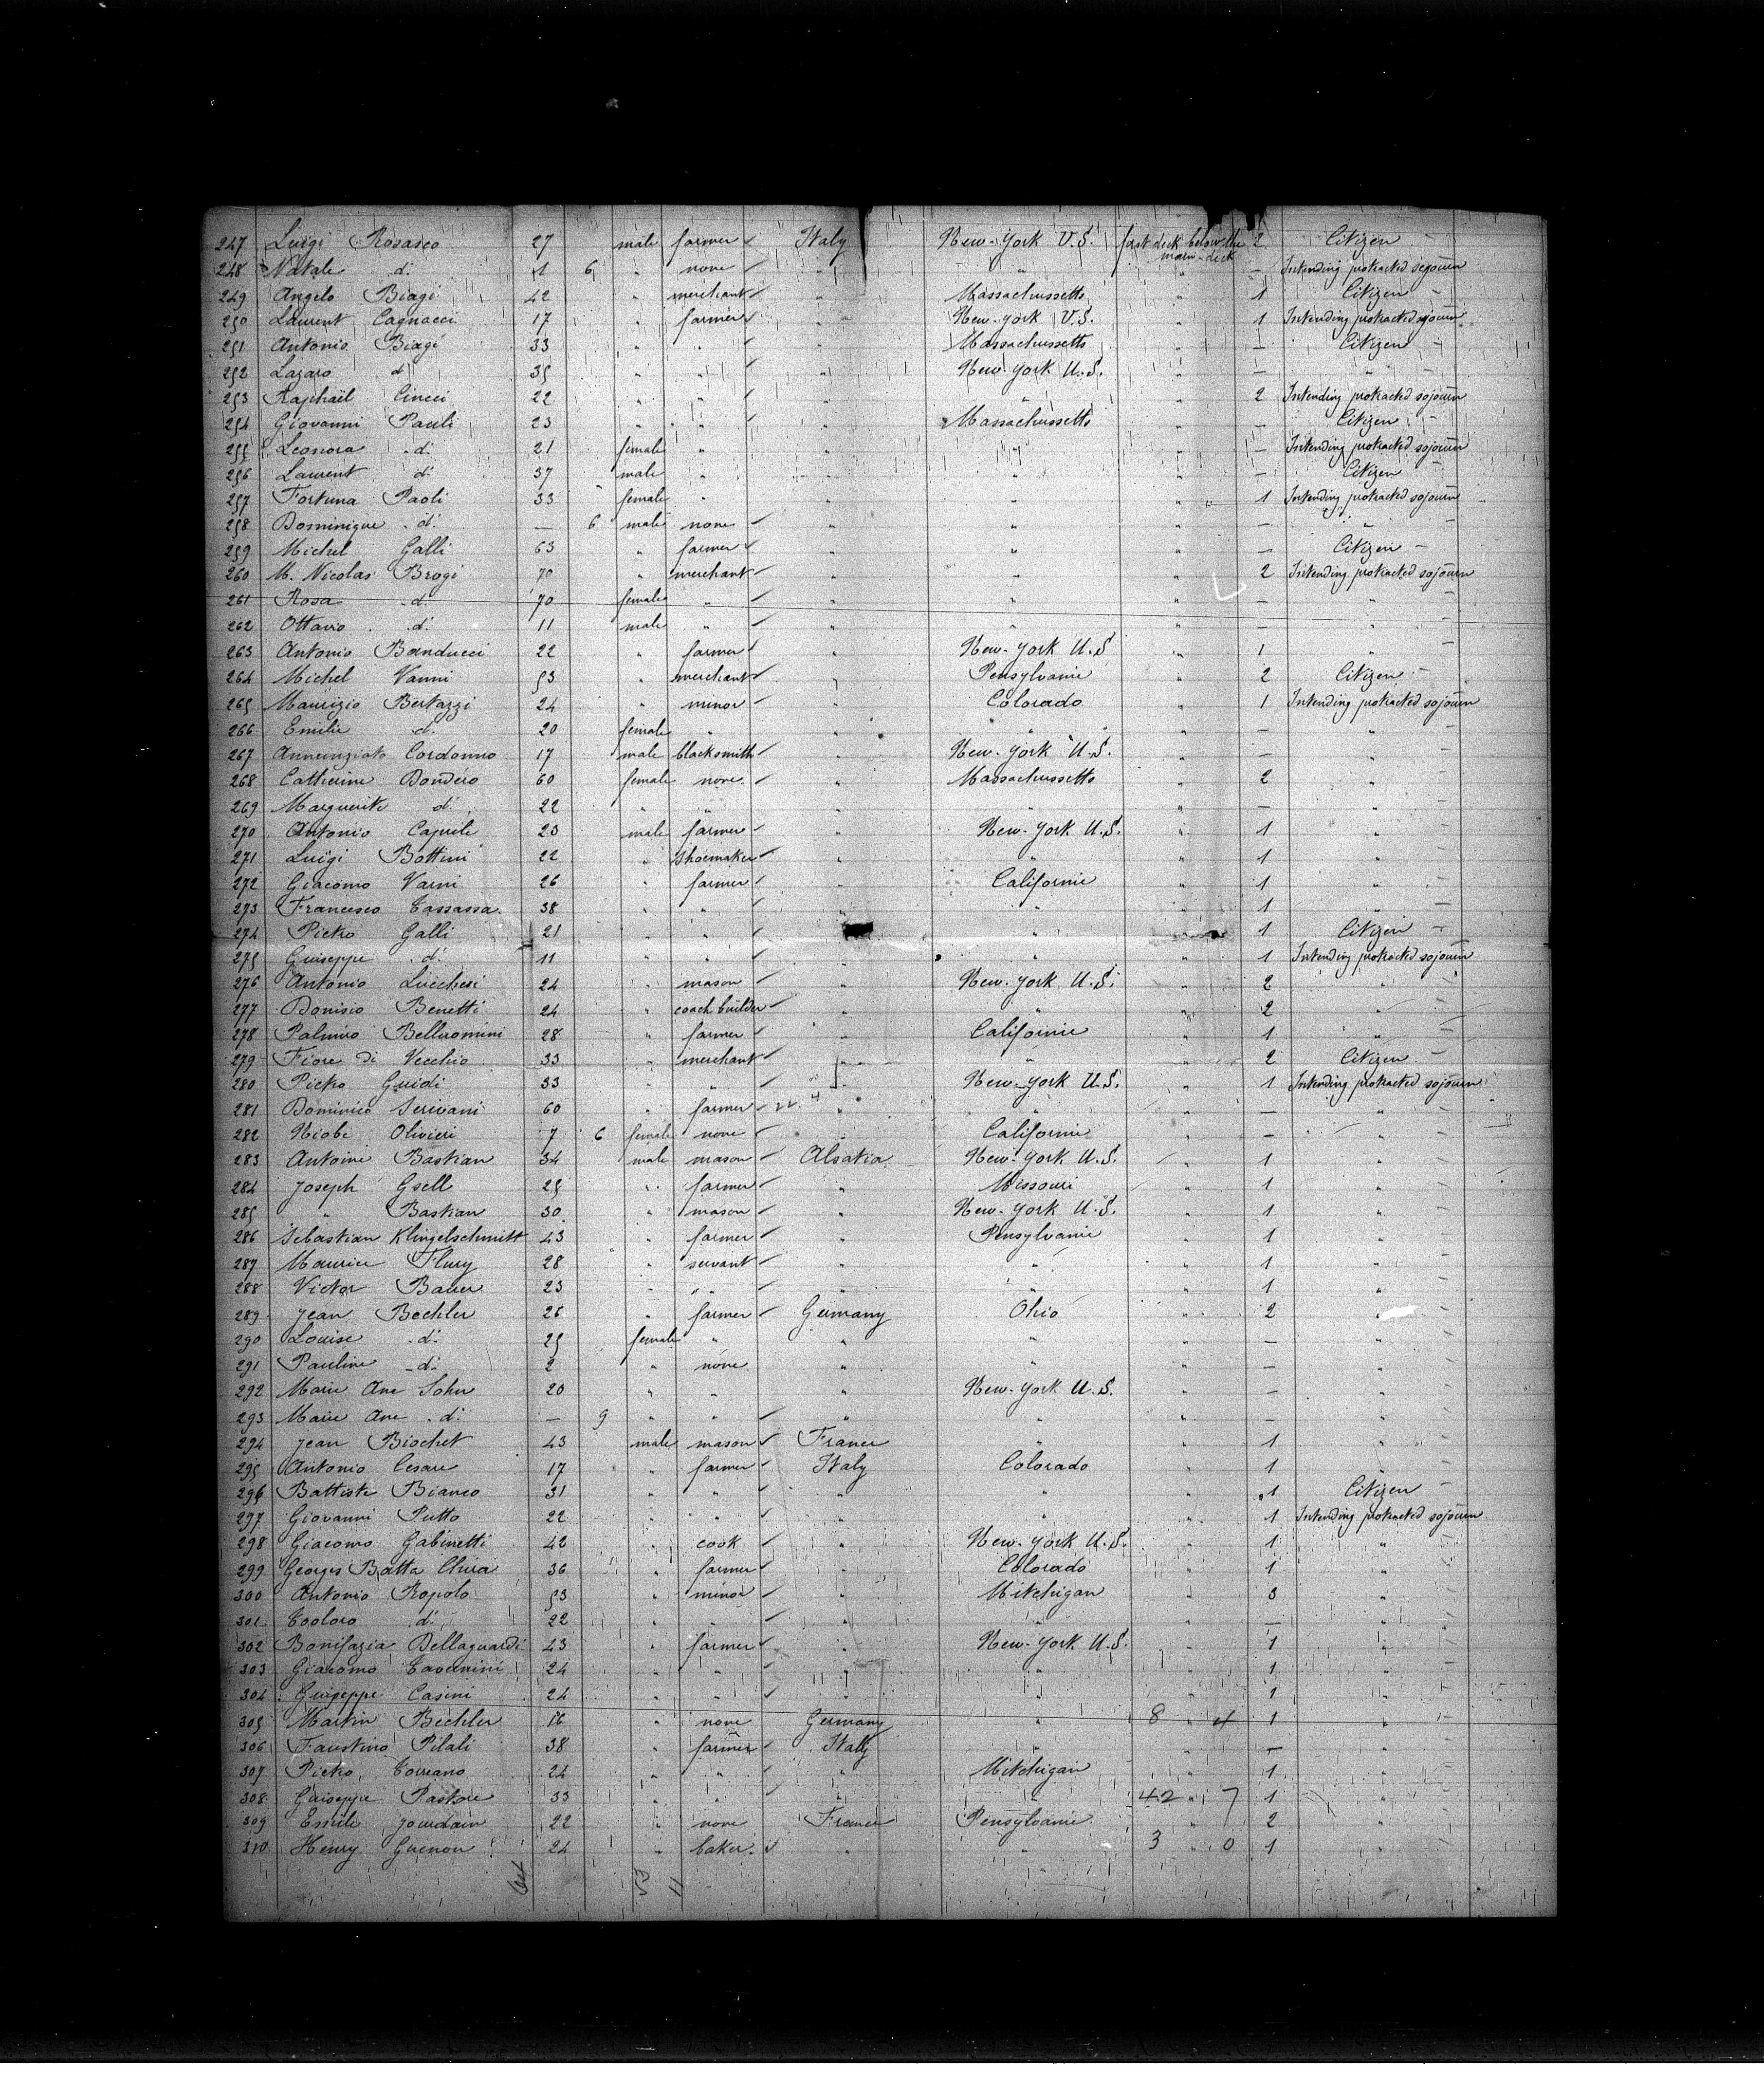 247 Luigi Rosasco 27 male farmer Italy New-York U.S. first deck below the main-deck 2 Citizen
248 Natale d: 1 6 " none " " " — Intending protracted sojourn
249 Angelo Biagi 42 " merchant " Massachussetts " 1 Citizen
250 Laurent Cagnacci 17 " farmer " New-York U.S. " 1 Intending protracted sojourn
251 Antonio Biagi 33 " " " Massachussetts " — Citizen
252 Lazaro d: 35 " " " New-York U.S. " — "
253 Raphaël Cincci 22 " " " " " 2 Intending protracted sojourn
254 Giovanni Pauli 23 " " " Massachussetts " — Citizen
255 Leonora d: 21 female " " " " — Intending protracted sojourn
256 Laurent d: 37 male " " " " — Citizen
257 Fortuna Paoli 33 female " " " " 1 Intending protracted sojourn
258 Dominique d: — 6 male none " " " — "
259 Michel Galli 63 " farmer " " " — Citizen
260 M. Nicolas Brogi 70 " merchant " " " 2 Intending protracted sojourn
261 Rosa d: 70 female " " " " — "
262 Ottavio d: 11 male " " " " — "
263 Antonio Banducci 22 " farmer " New-York U.S " 1 "
264 Michel Vanni 53 " merchant " Pensylvanie " 2 Citizen
265 Maurizio Bertazzi 24 " minor " Colorado " 1 Intending protracted sojourn
266 Emilie d: 20 female " " " " — "
267 Annunziato Cordonno 17 male blacksmith " New-York U.S. " — "
268 Catherine Dondero 60 female none " Massachussetts " 2 "
269 Marguerite d: 22 " " " " " — "
270 Antonio Caprile 23 male farmer " New-York U.S. " 1 "
271 Luigi Bottini 22 " shoemaker " " " 1 "
272 Giacomo Varni 26 " farmer " Californie " 1 "
273 Francesco Cassassa 38 " " " " " 1 "
274 Pietro Galli 21 " " " " 1 Citizen
275 Guiseppe d: 11 " " " " " 1 Intending protracted sojourn
276 Antonio Lucchesi 24 " mason " New-York U.S. " 2 "
277 Donisio Benetti 24 " coach builder " " " 2 "
278 Palmiro Belluomini 28 " farmer " Californie " 1 "
279 Fiore di Vecchio 33 " merchant " " " 2 Citizen
280 Pietro Guidi 33 " " " New-York U.S. " 1 Intending protracted sojourn
281 Dominico Scrivani 60 " farmer " " " — "
282 Niobé Olivieri 7 6 female none " Californie " — "
283 Antoine Bastian 34 male mason Alsatia New-York U.S. " 1 "
284 Joseph Gsell 25 " farmer " Missouri " 1 "
285 " Bastian 30 " mason " New-York U.S. " 1 "
286 Sébastian Klingelschmitt 43 " farmer " Pensylvanie " 1 "
287 Maurice Flury 28 " servant " " " 1 "
288 Victor Bauer 23 " " " " " 1 "
289 Jean Bechler 26 " farmer Germany Ohio " 2 "
290 Louise d: 25 female " " " " — "
291 Pauline d: 2 " none " " " — "
292 Marie Ane Sohn 20 " " " New-York U.S. " — "
293 Marie Ane d: — 9 " " " " " — "
294 Jean Biochet 43 male mason France " " 1 "
295 Antonio Cesare 17 " farmer Italy Colorado " 1 "
296 Battiste Bianco 31 " " " " " 1 Citizen
297 Giovanni Putto 22 " " " " " 1 Intending protracted sojourn
298 Giacomo Gabinetti 42 " cook " New-York U.S. " 1 "
299 Georges Batta Chira 36 " farmer " Colorado " 1 "
300 Antonio Ropolo 53 " minor " Mitchigan " 3 "
301 d: 22 " " " " " — "
302 Bonifazia Bellaguardi 43 " farmer " New-York U.S. " 1 "
303 Giacomo Tavernini 24 " " " " " 1 "
304 Guiseppe Casini 24 " " " " " 1 "
305 Martin Bechler 16 " none Germany " 8 " 4 1 "
306 Faustino Pilati 38 " farmer Italy " " — "
307 Pietro Corrano 24 " " " Mitchigan " 1 "
308 Guiseppe Pastore 33 " " " " 42 " 7 1 "
309 Emile Jourdain 22 " none France Pensylvanie " 2 "
310 Henry Guenon 24 " baker " " 3 " 0 1 "
64 53 11